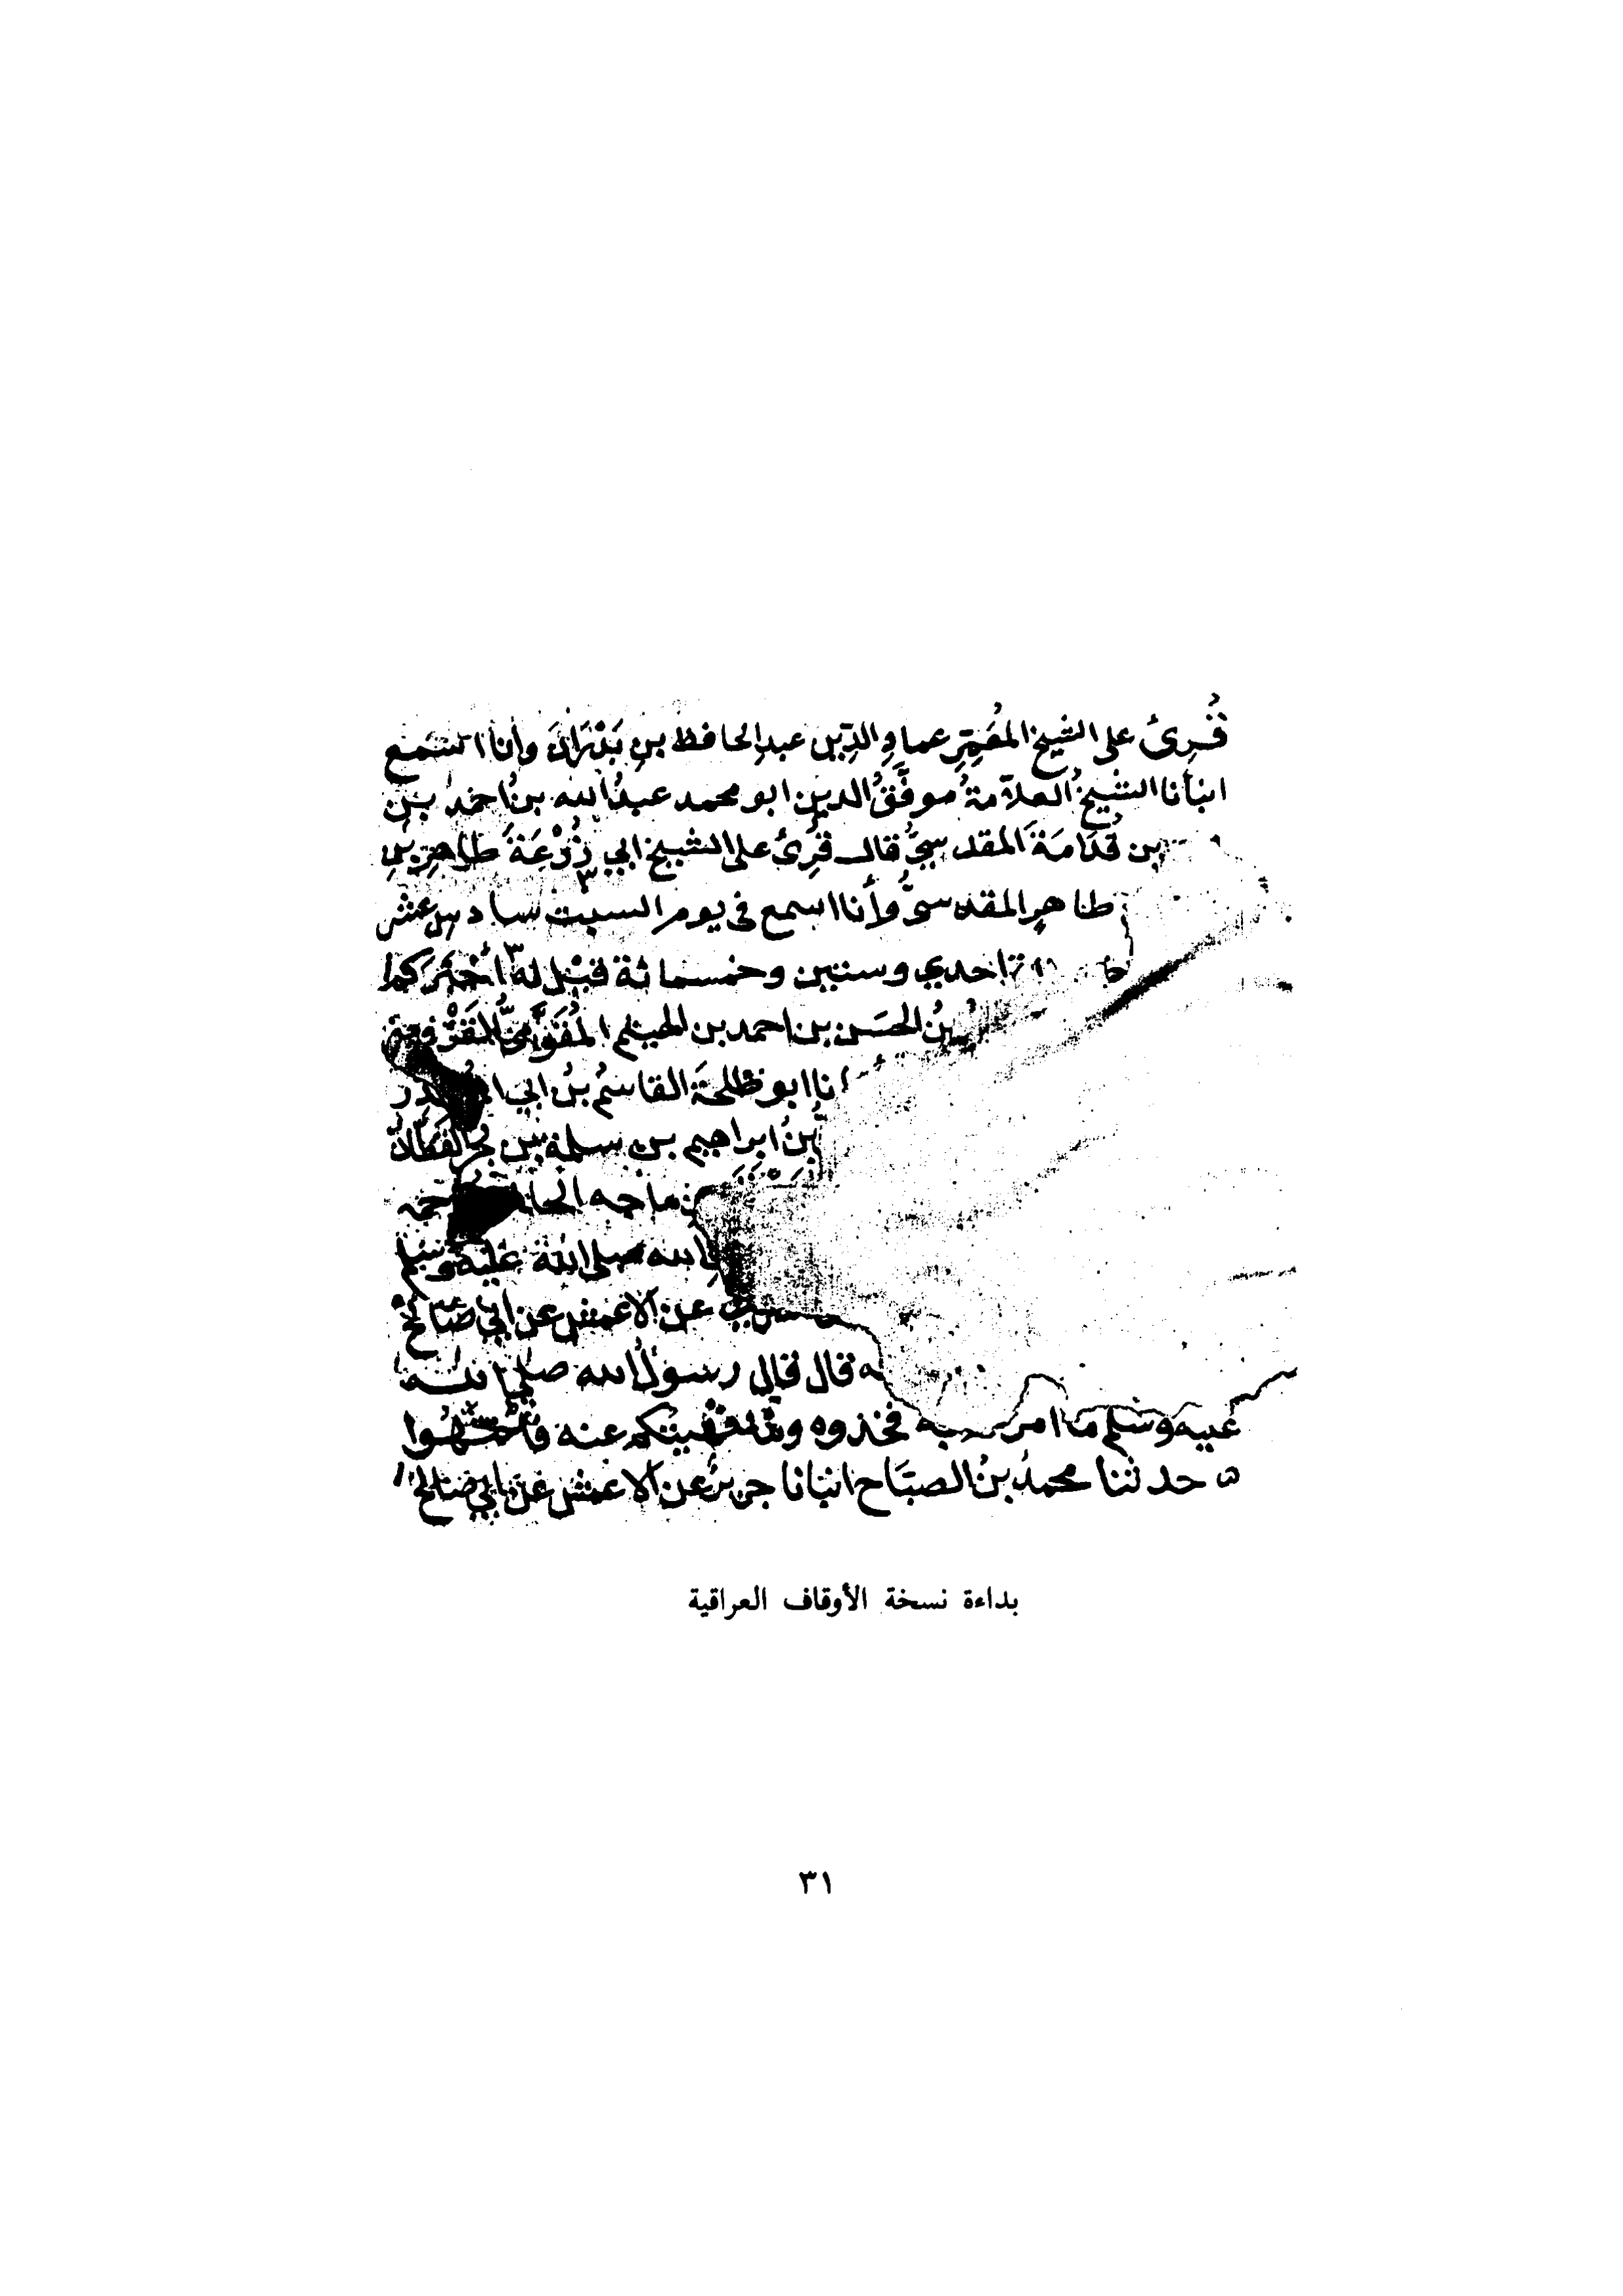 قُرِئَ على الشيخ المُعَمِّرِ عماد الدِّين عبد الحافظ بن بَدْرَانَ وأنا اسمع
انبأنا الشيخُ العلاّمةُ موفَّقُ الدين ابو محمد عبدُ الله بنُ احمد بن
بن قُدَامَةَ المقدسِيُّ قال قُرِئَ على الشيخ ابي زُرْعَةَ طاهِرِ بن
طاهرٍ المقدسيِّ وأنا اسمع فى يوم السبت سادس عشر
احدي وستين وخمسمائة قيل له أخبركم
بنُ الحسَن بن احمد بن الهيثم المُقَوِّمِيُّ القزوينى
انا ابو طلحَةَ القاسمُ بنُ ابي المنذر
بنُ ابراهيم بن سلمة بن بحر القطان
بن ماجه
الله صلى الله عليه وسلم
عن الاعمش عن ابي صَالح
قال قال رسولُ الله صلى الله
عليه وسلم ما امر به فخذوه وما نهيتكم عنه فانتهُوا
ه حدثنا محمدُ بنُ الصبَّاح انبانا جريرٌ عن الاعمش عن ابي صالح
بداءة نسخة الأوقاف العراقية
٣١